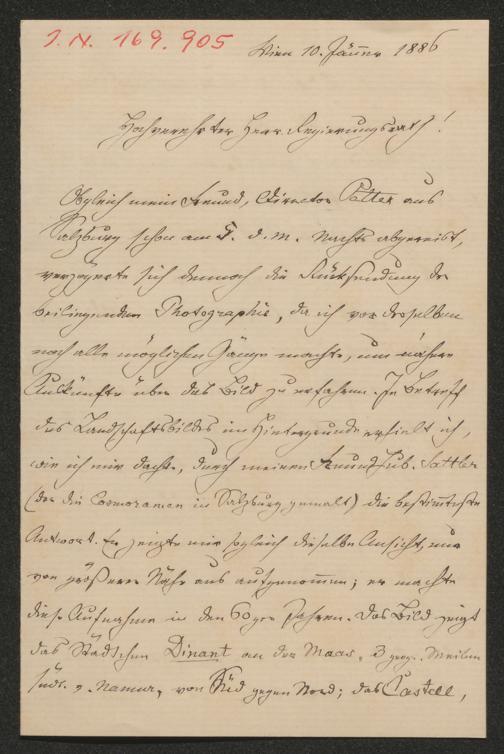 J. N. 169.905
Wien 10. Jänner 1886
Hochverehrter Herr Regierungsrath!
Obgleich mein Freund, Director Petter aus
Salzburg schon am 5. d. M. Nachts abgereist,
verzögerte sich dennoch die Rücksendung der
beiliegenden Photographie, da ich vor derselben
noch alle möglichen Gänge machte, um nähere
Auskünfte über das Bild zu erfahren. In Betreff
des Landschaftsbildes im Hintergrunde erhielt ich,
wie ich mir dachte, durch meinen Freund Hub. Sattler
(der die Cosmoramen in Salzburg gemalt) die bestimmteste
Antwort. Er zeigte mir sogleich dieselbe Ansicht, nur
von größerer Nähe aus aufgenommen; er machte
diese Aufnahme in den 60ger Jahren. Das Bild zeigt
das Städtchen Dinant an der Maas, 3 geogr. Meilen
südl. v. Namur, von Süd gegen Nord; das Castell,